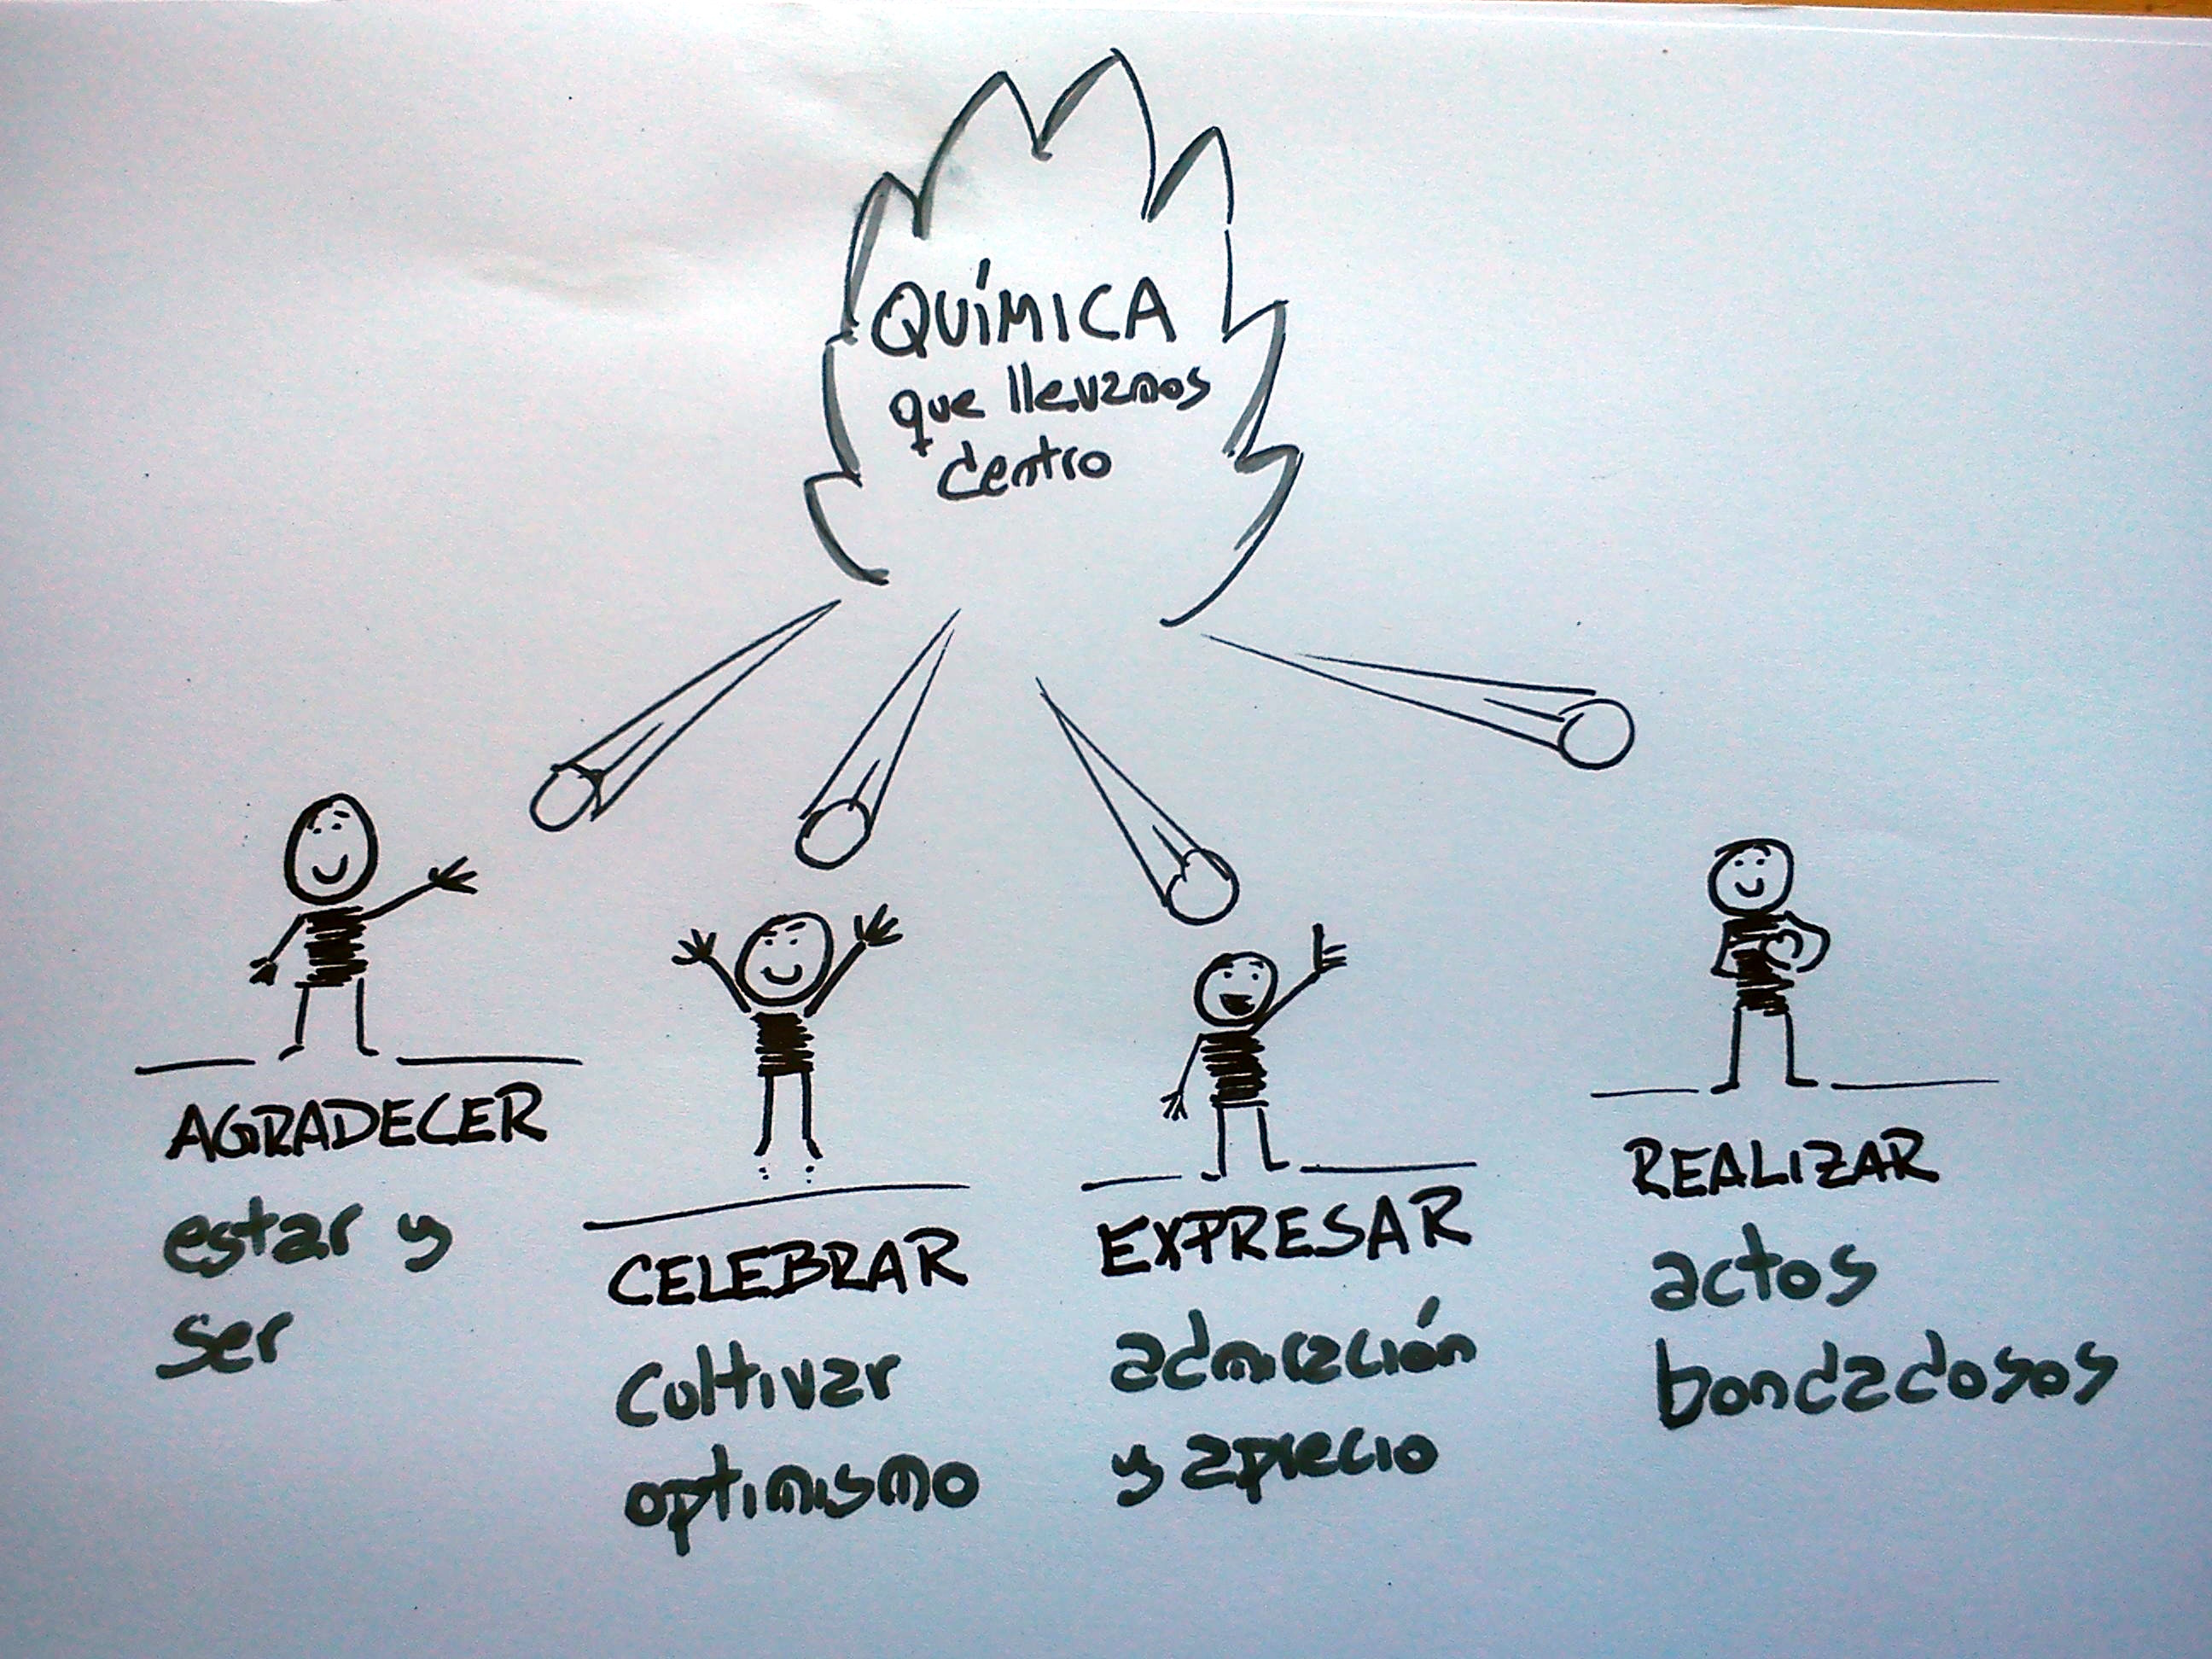 QUÍMICA
que llevamos
dentro
AGRADECER
estar y
ser
CELEBRAR
cultivar
optimismo
EXPRESAR
admiración
y aprecio
REALIZAR
actos
bondadosos